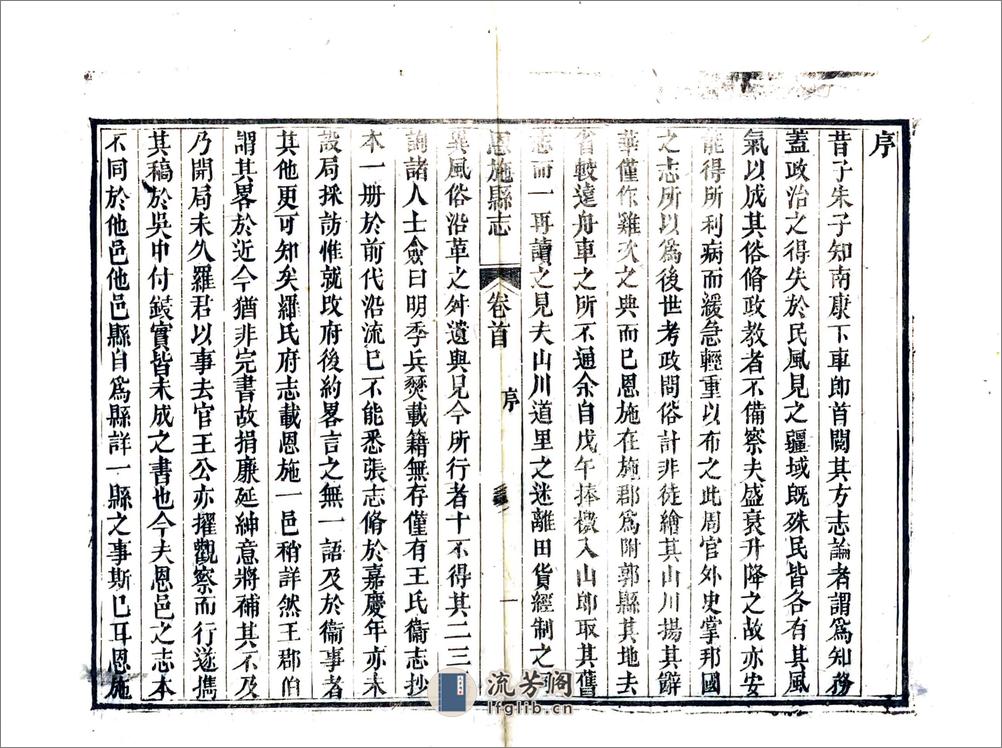 序
昔子朱子知南康下車即首閱其方志論者謂爲知務
蓋政治之得失於民風見之疆域既殊民皆各有其風
氣以成其俗脩政教者不備察夫盛衰升降之故亦安
能得所利病而緩急輕重以布之此周官外史掌邦國
之志所以爲後世考政問俗計非徒繪其山川揚其辭
華僅作雞次之典而已恩施在施郡爲附郭縣其地去
省較遠舟車之所不通余自戊午捧檄入山郎取其舊
志而一再讀之見夫山川道里之迷離田貨經制之同
異風俗沿革之舛遺與兄今所行者十不得其二三
詢諸人士僉曰明季兵燹載籍無存僅有王氏衞志抄
本一册於前代沿流已不能悉張志脩於嘉慶年亦未
設局採訪惟就改府後約畧言之無一語及於衞事者
其他更可知矣羅氏府志載恩施一邑稍詳然王郡伯
謂其畧於近今猶非完書故捐廉延紳意將補其不及
乃開局未久羅君以事去官王公亦擢觀察而行遂攜
其稿於吳中付鋟實皆未成之書也今夫恩邑之志本
不同於他邑他邑縣自爲縣詳一縣之事斯已耳恩施
恩施縣志 卷首 序 一
流芳阁
lfglib.cn